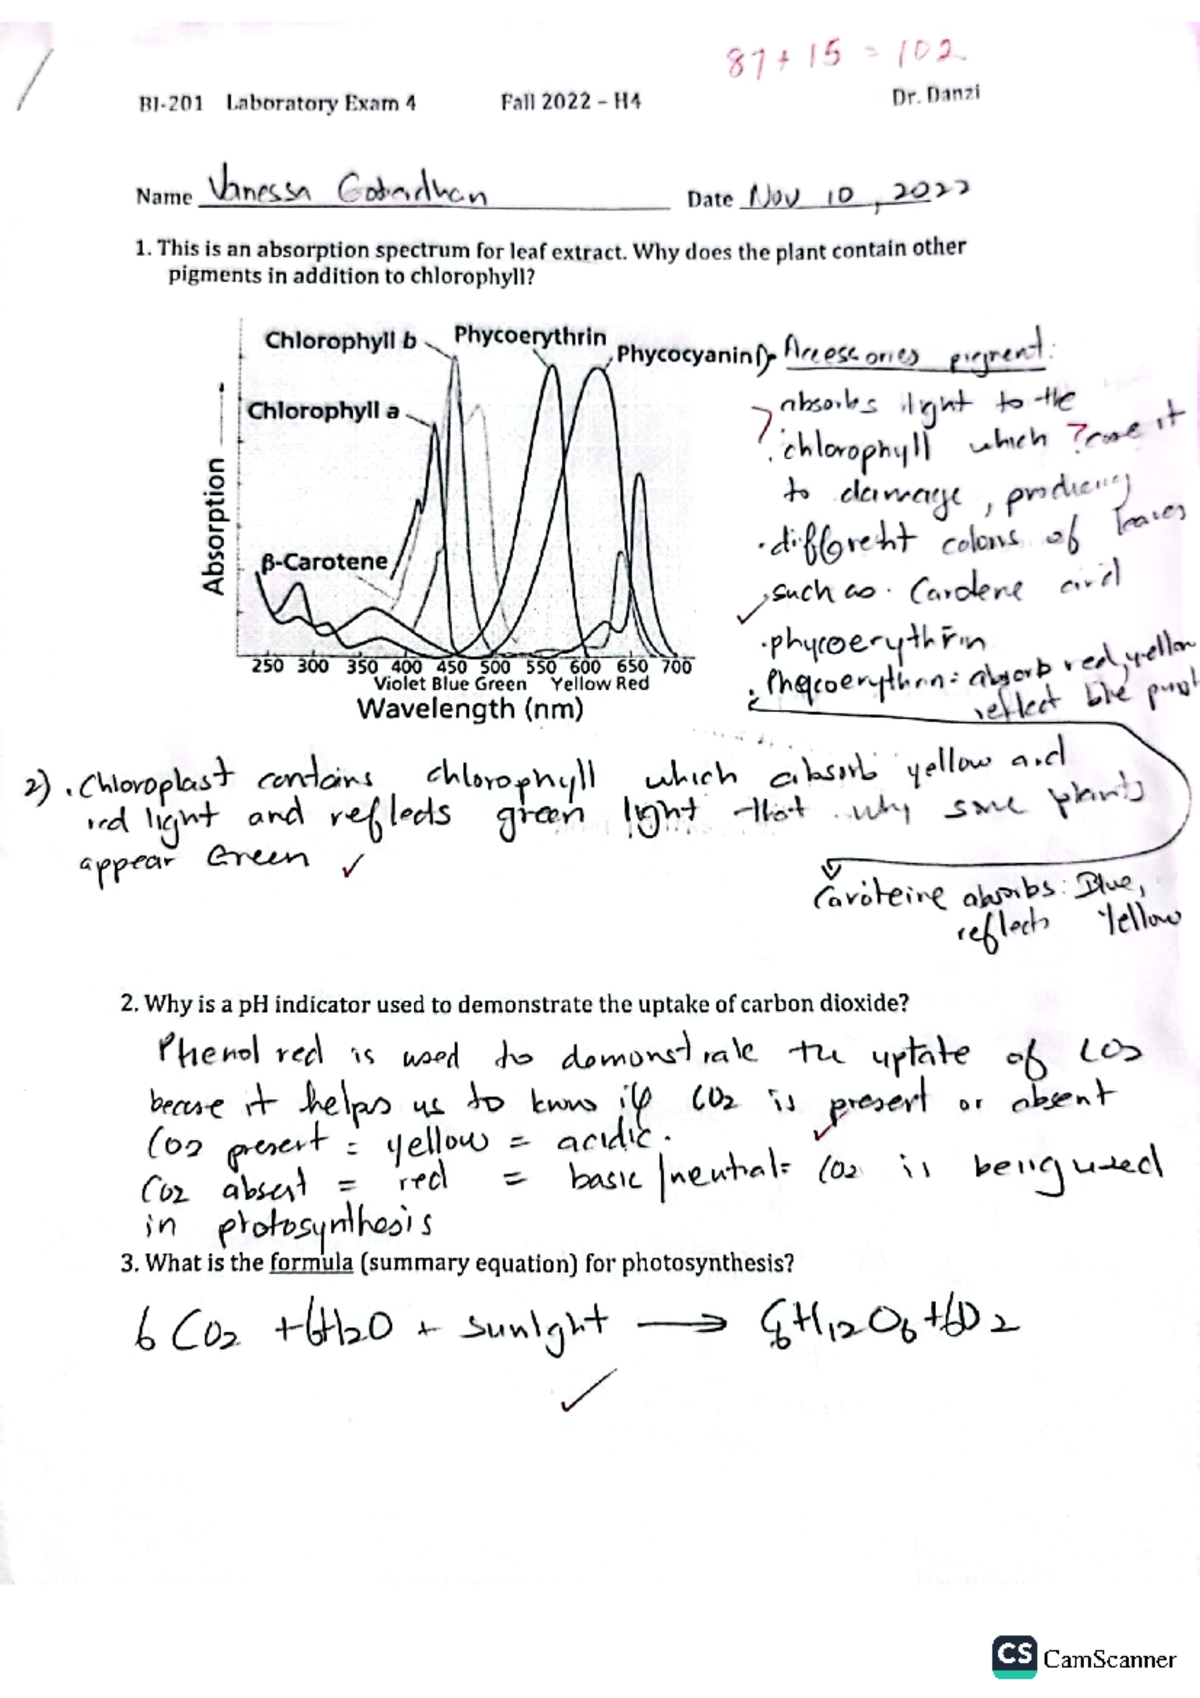 87 + 15 = 102
BI-201 Laboratory Exam 4 Fall 2022 – H4 Dr. Danzi
Name Vanessa Gobardhan Date Nov 10, 2022
1. This is an absorption spectrum for leaf extract. Why does the plant contain other
pigments in addition to chlorophyll?
Chlorophyll b Phycoerythrin
Phycocyanin
Chlorophyll a
β-Carotene
Absorption
250 300 350 400 450 500 550 600 650 700
Violet Blue Green Yellow Red
Wavelength (nm)
1) Accessories pigment:
? absorbs light to the
chlorophyll which ? cause it
to damage, producing
· different colors of leaves
such as · Cardene and
· phycoerythrin
· Phycoerythrin: absorb red, yellow
reflect blue
2) · Chloroplast contains chlorophyll which absorb yellow and
red light and reflects green light that why some plants
appear Green
Caroteine absorbs: Blue,
reflects Yellow
2. Why is a pH indicator used to demonstrate the uptake of carbon dioxide?
Phenol red is used to demonstrate the uptate of CO2
because it helps us to know if CO2 is present or absent
CO2 present = yellow = acidic.
CO2 absent = red = basic/neutral = CO2 is being used
in photosynthesis
3. What is the formula (summary equation) for photosynthesis?
6 CO2 + 6H2O + sunlght → C6H12O6 + 6O2
CS CamScanner